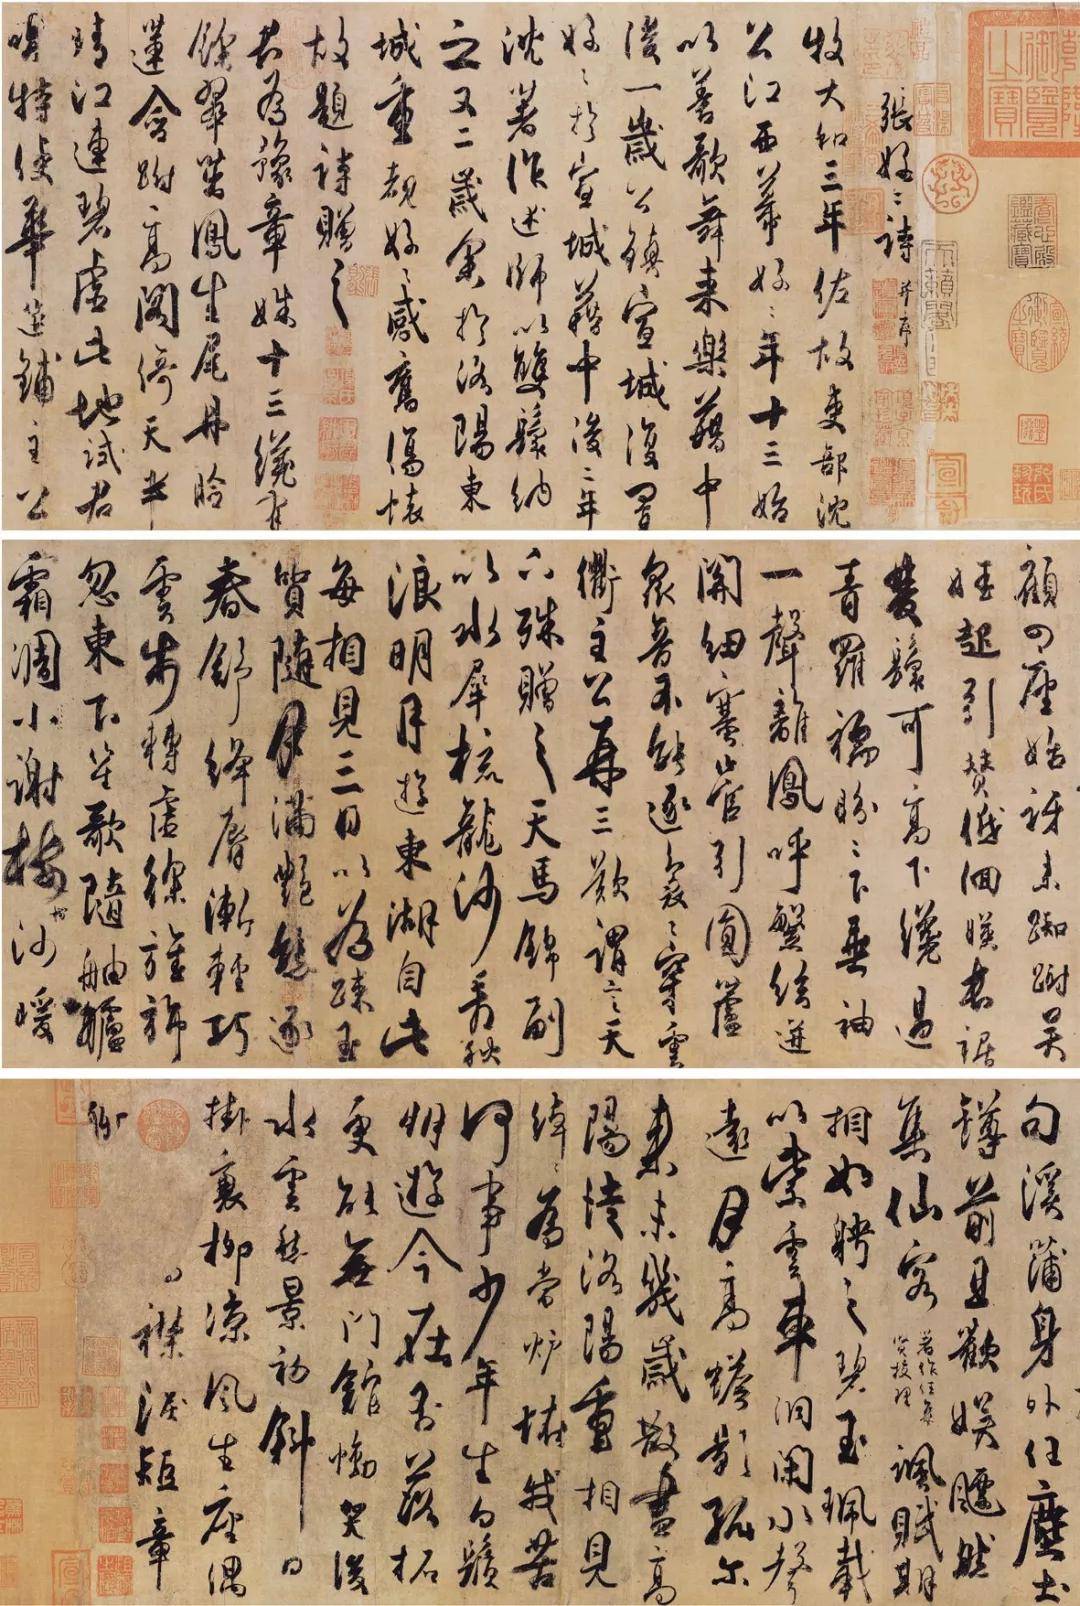 張好好詩 并序
牧大和三年佐故吏部沈
公江西幕好好年十三始
以善歌舞來樂籍中
後一歲公鎮宣城復置
好好於宣城籍中後二年
沈著作述師以雙鬟納
之又二歲余於洛陽東
城重覩好好感舊傷懷
故題詩贈之
君為豫章姝十三纔有
餘翠茁鳳生尾丹臉
蓮含跗高閣倚天半
晴江連碧虛此地試君
唱特使華筵鋪主公
顧四座始訝來踟躕吳
娃起引贊低佪暎長裾
雙鬟可高下纔過
青羅襦盼盼下垂袖
一聲離鳳呼繁弦迸
關紐塞管引圓蘆
眾音不能逐裊裊穿雲
衢主公再三歎謂言天
下殊贈之天馬錦副
以水犀梳龍沙看秋
浪明月遊東湖自此
每相見三日以為疎玉
質隨月滿艷態逐
春舒絳脣漸輕巧
雲步轉虛徐旌旆
忽東下笙歌隨舳艫
霜凋小謝樹沙暖
句溪蒲身外任塵土
罇前且歡娛飄然
集仙客 著作任集賢校理 諷賦期
相如聘之碧玉珮載
以紫雲車洞閉水聲
遠月高蟾影孤爾
來未幾歲散盡高
陽徒洛陽重相見
綽綽為當爐怪我苦
何事少年生白鬚
朋遊今在否落拓
更能無門館慟哭後
水雲愁景初斜日
掛衰柳涼風生座隅
襟淚短章
聊